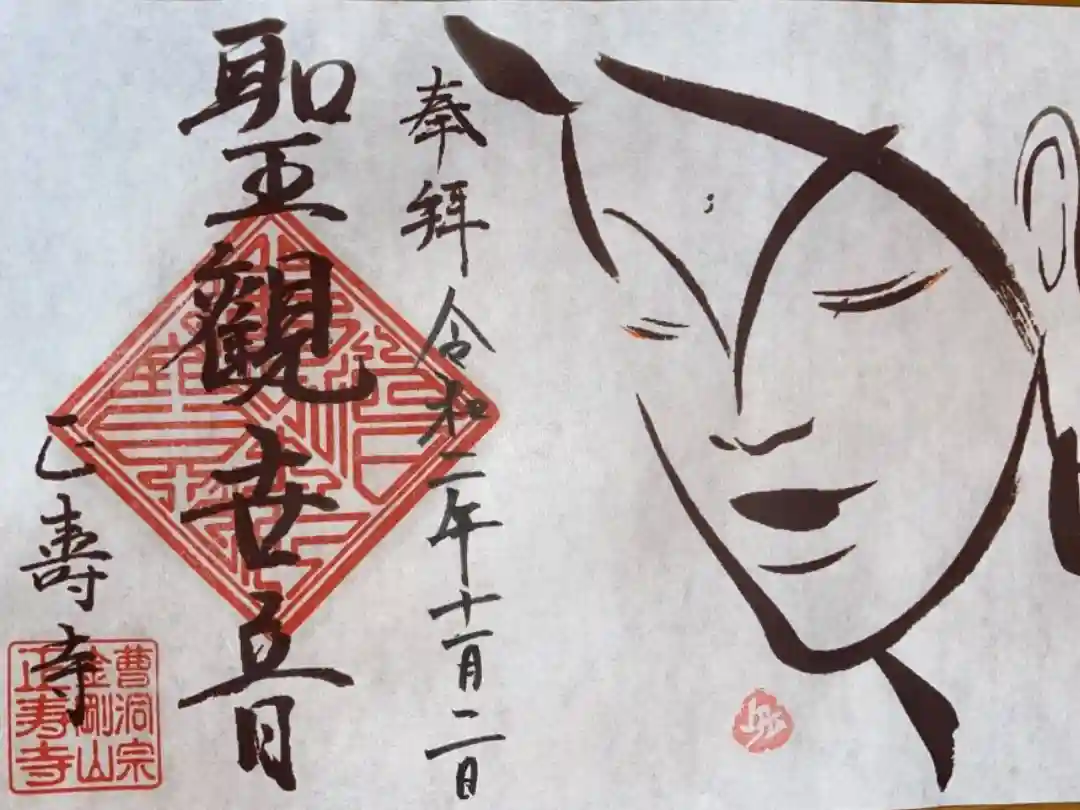 奉拝
令和二年十一月二日
聖觀世音
正壽寺
曹洞宗
金剛山
正寿寺